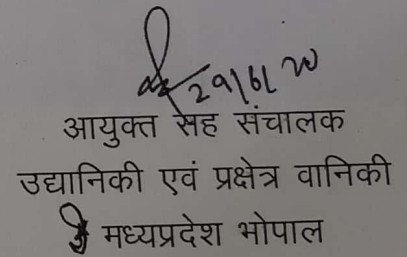 29/6/20
आयुक्त सह संचालक
उद्यानिकी एवं प्रक्षेत्र वानिकी
मध्यप्रदेश भोपाल